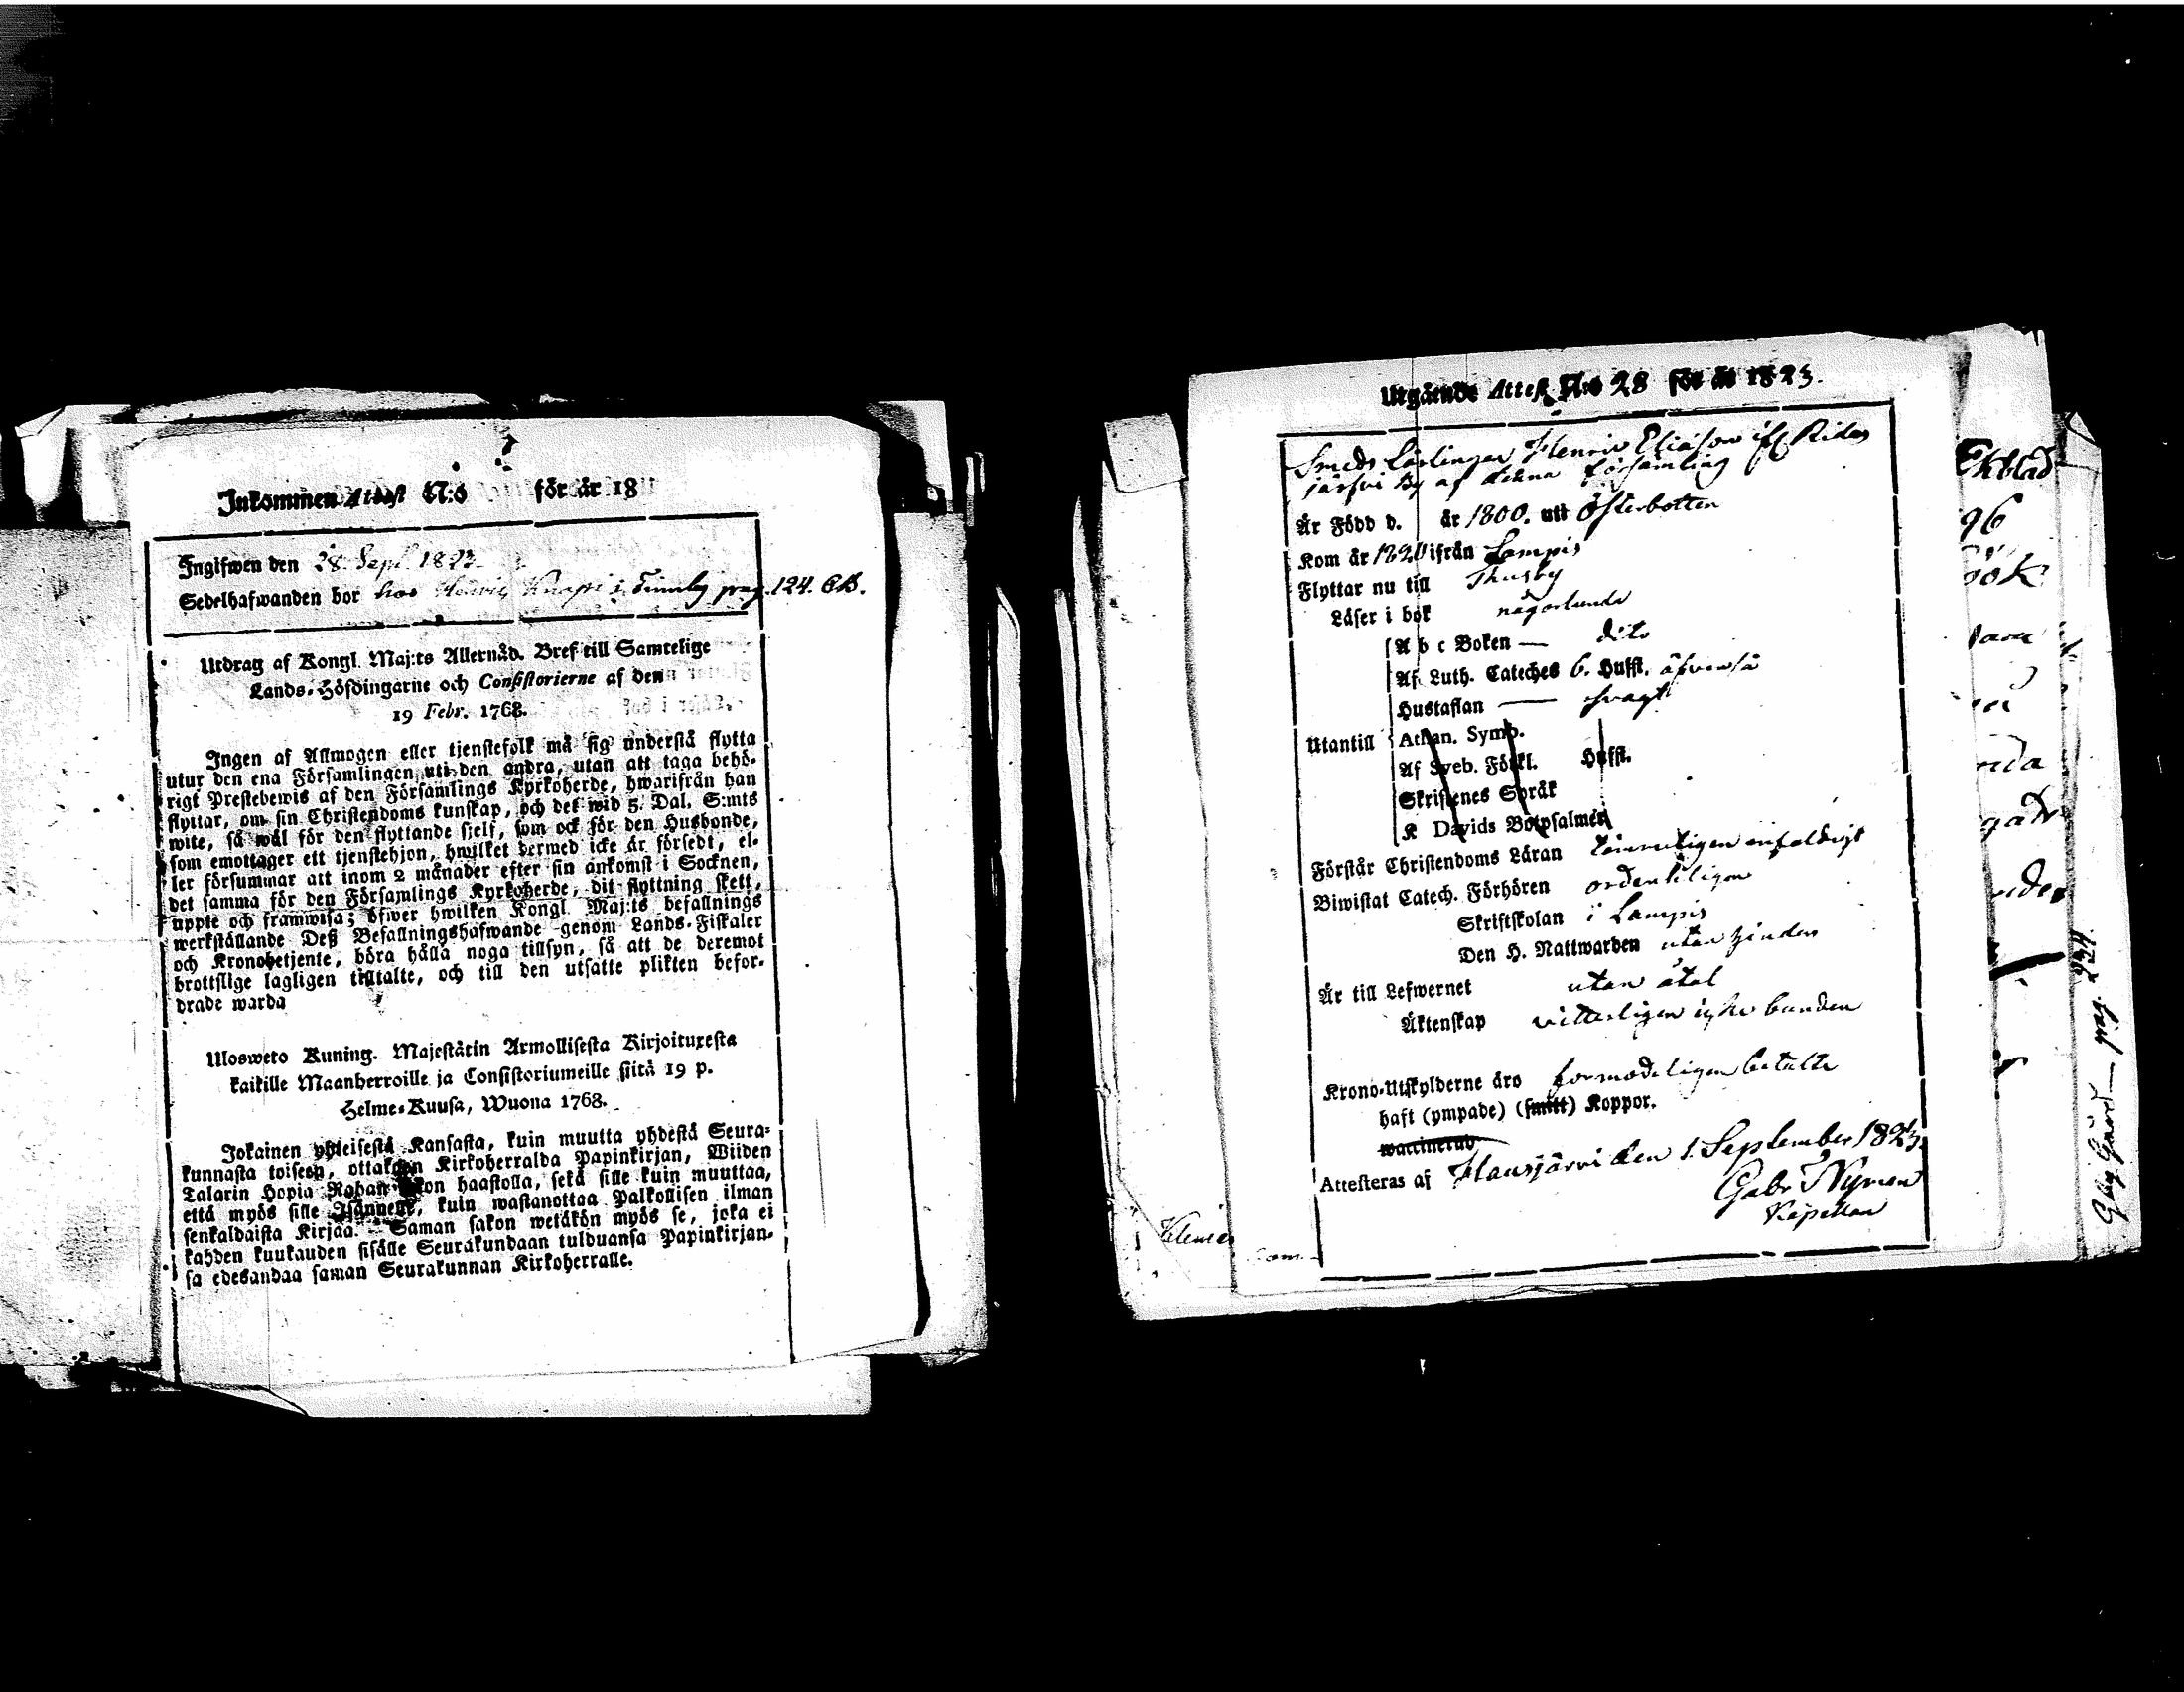 Inkommen Attest N:o för år 18
Ingifwen den 28. Sept. 1823.
Sedelhafwanden bor hos Henric Knapi i Finnby pag. 124. CB.
Utdrag af Kongl. Maj:ts Allernåd. Bref till Samtelige
Lands-Höfdingarne och Consistorierne af den
19 Febr. 1768.
Ingen af Allmogen eller tjenstefolk må sig understå flytta
utur den ena Församlingen uti den andra, utan att taga behö-
rigt Prestebewis af den Församlings Kyrkoherde, hwarifrån han
flyttar, om sin Christendoms kunskap, och det wid 5 Dal. S:mts
wite, så wäl för den flyttande sjelf, som ock för den Husbonde,
som emottager ett tjenstehjon, hwilket dermed icke är försedt, el-
ler försummar att inom 2 månader efter sin ankomst i Socknen,
det samma för den Församlings Kyrkoherde, dit flyttning skett,
uppte och framwisa; öfwer hwilken Kongl. Maj:ts befallnings
werkställande Deß Befallningshafwande genom Lands-Fiskaler
och Kronobetjente, böra hålla noga tillsyn, så att de deremot
brottslige lagligen tilltalte, och till den utsatte plikten befor-
drade warda
Ulosweto Kuning. Majestätin Armollisesta Kirjoituxesta
kaikille Maanherroille ja Consistoriumeille siitä 19 p.
Helme-Kuusa, Wuona 1768.
Jokainen yhteisestä Kansasta, kuin muutta yhdestä Seura-
kunnasta toiseen, ottakaan Kirkoherralda Papinkirjan, Wiiden
Talarin Hopia Rahan sakon haastolla, sekä sille kuin muuttaa,
että myös sille Isännelle, kuin wastanottaa Palkollisen ilman
senkaldaista Kirjaa. Saman sakon wetäkön myös se, joka ei
kahden kuukauden sisälle Seurakundaan tulduansa Papinkirjan-
sa edesandaa saman Seurakunnan Kirkoherralle.
Utgående Attest N:o 28 för år 1823.
Smeds Lärlingen Henric Eliasson ifr. Ridas
järfvi By af denna Församling
Är Född d. år 1800. uti Österbotten
Kom år 1820 ifrån Lampis
Flyttar nu till Thusby
Läser i bok någorlunda
A b c Boken — dito
Af Luth. Cateches 6. Hufst. äfvenså
Hustaflan — svagt
Utantill Athan. Symb.
Af Sveb. Förkl. Hufst.
Skriftenes Språk
K Davids Botpsalmer
Förstår Christendoms Läran temmeligen enfaldigt
Biwistat Catech. Förhören ordenteligen
Skriftskolan i Lampis
Den H. Nattwarden utan hinder
Är till Lefwernet utan åtal
Äktenskap vitterligen icke bunden
Krono-Utskylderne äro förmodeligen betalte
haft (ympade) (smitt) Koppor.
waccinerad
Attesteras af Hausjärvi den 1. September 1823.
Gabr. Nyman
Kapellan
Ekblad
96
pag. 224.